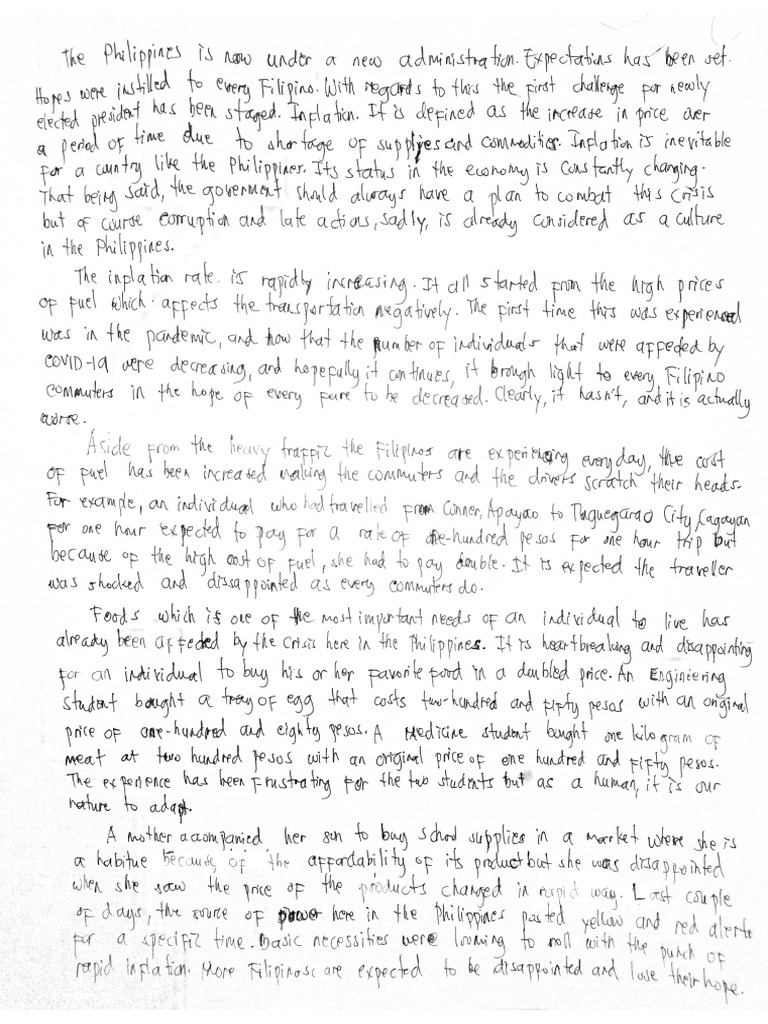 The Philippines is now under a new administration. Expectations has been set.
Hopes were instilled to every Filipino. With regards to this the first challenge for newly
elected president has been staged. Inflation. It is defined as the increase in price over
a period of time due to shortage of supplies and commodities. Inflation is inevitable
for a country like the Philippines. Its status in the economy is constantly changing.
That being said, the goverment should always have a plan to combat this crisis
but of course corruption and late actions, sadly, is already considered as a culture
in the Philippines.
The inflation rate is rapidly increasing. It all started from the high prices
of fuel which affects the transportation negatively. The first time this was experienced
was in the pandemic, and now that the number of individuals that were affected by
COVID-19 were decreasing, and hopefully it continues, it brough light to every Filipino
commuters in the hope of every fare to be decreased. Clearly, it hasn't, and it is actually
worse.
Aside from the heavy traffic the Filipinos are experiencing everyday, the cost
of fuel has been increased making the commuters and the drivers scratch their heads.
For example, an individual who had travelled from Conner, Apayao to Tuguegarao City, Cagayan
for one hour expected to pay for a rate of one-hundred pesos for one hour trip but
because of the high cost of fuel, she had to pay double. It is expected the traveller
was shocked and dissappointed as every commuters do.
Foods which is one of the most important needs of an individual to live has
already been affected by the crisis here in the Philippines. It is heartbreaking and disappointing
for an individual to buy his or her favorite food in a doubled price. An Engineering
student bought a tray of egg that costs two-hundred and fifty pesos with an original
price of one-hundred and eighty pesos. A Medicine student bought one kilogram of
meat at two hundred pesos with an original price of one hundred and fifty pesos.
The experience has been frustrating for the two students but as a human, it is our
nature to adapt.
A mother accompanied her son to buy school supplies in a market where she is
a habitue because of the affordability of its product but she was disappointed
when she saw the price of the products changed in rapid way. Last couple
of days, the source of power here in the Philippines posted yellow and red alerts
for a specific time. Basic necessities were looming to roll with the punch of
rapid inflation. More Filipinos are expected to be disappointed and lose their hope.